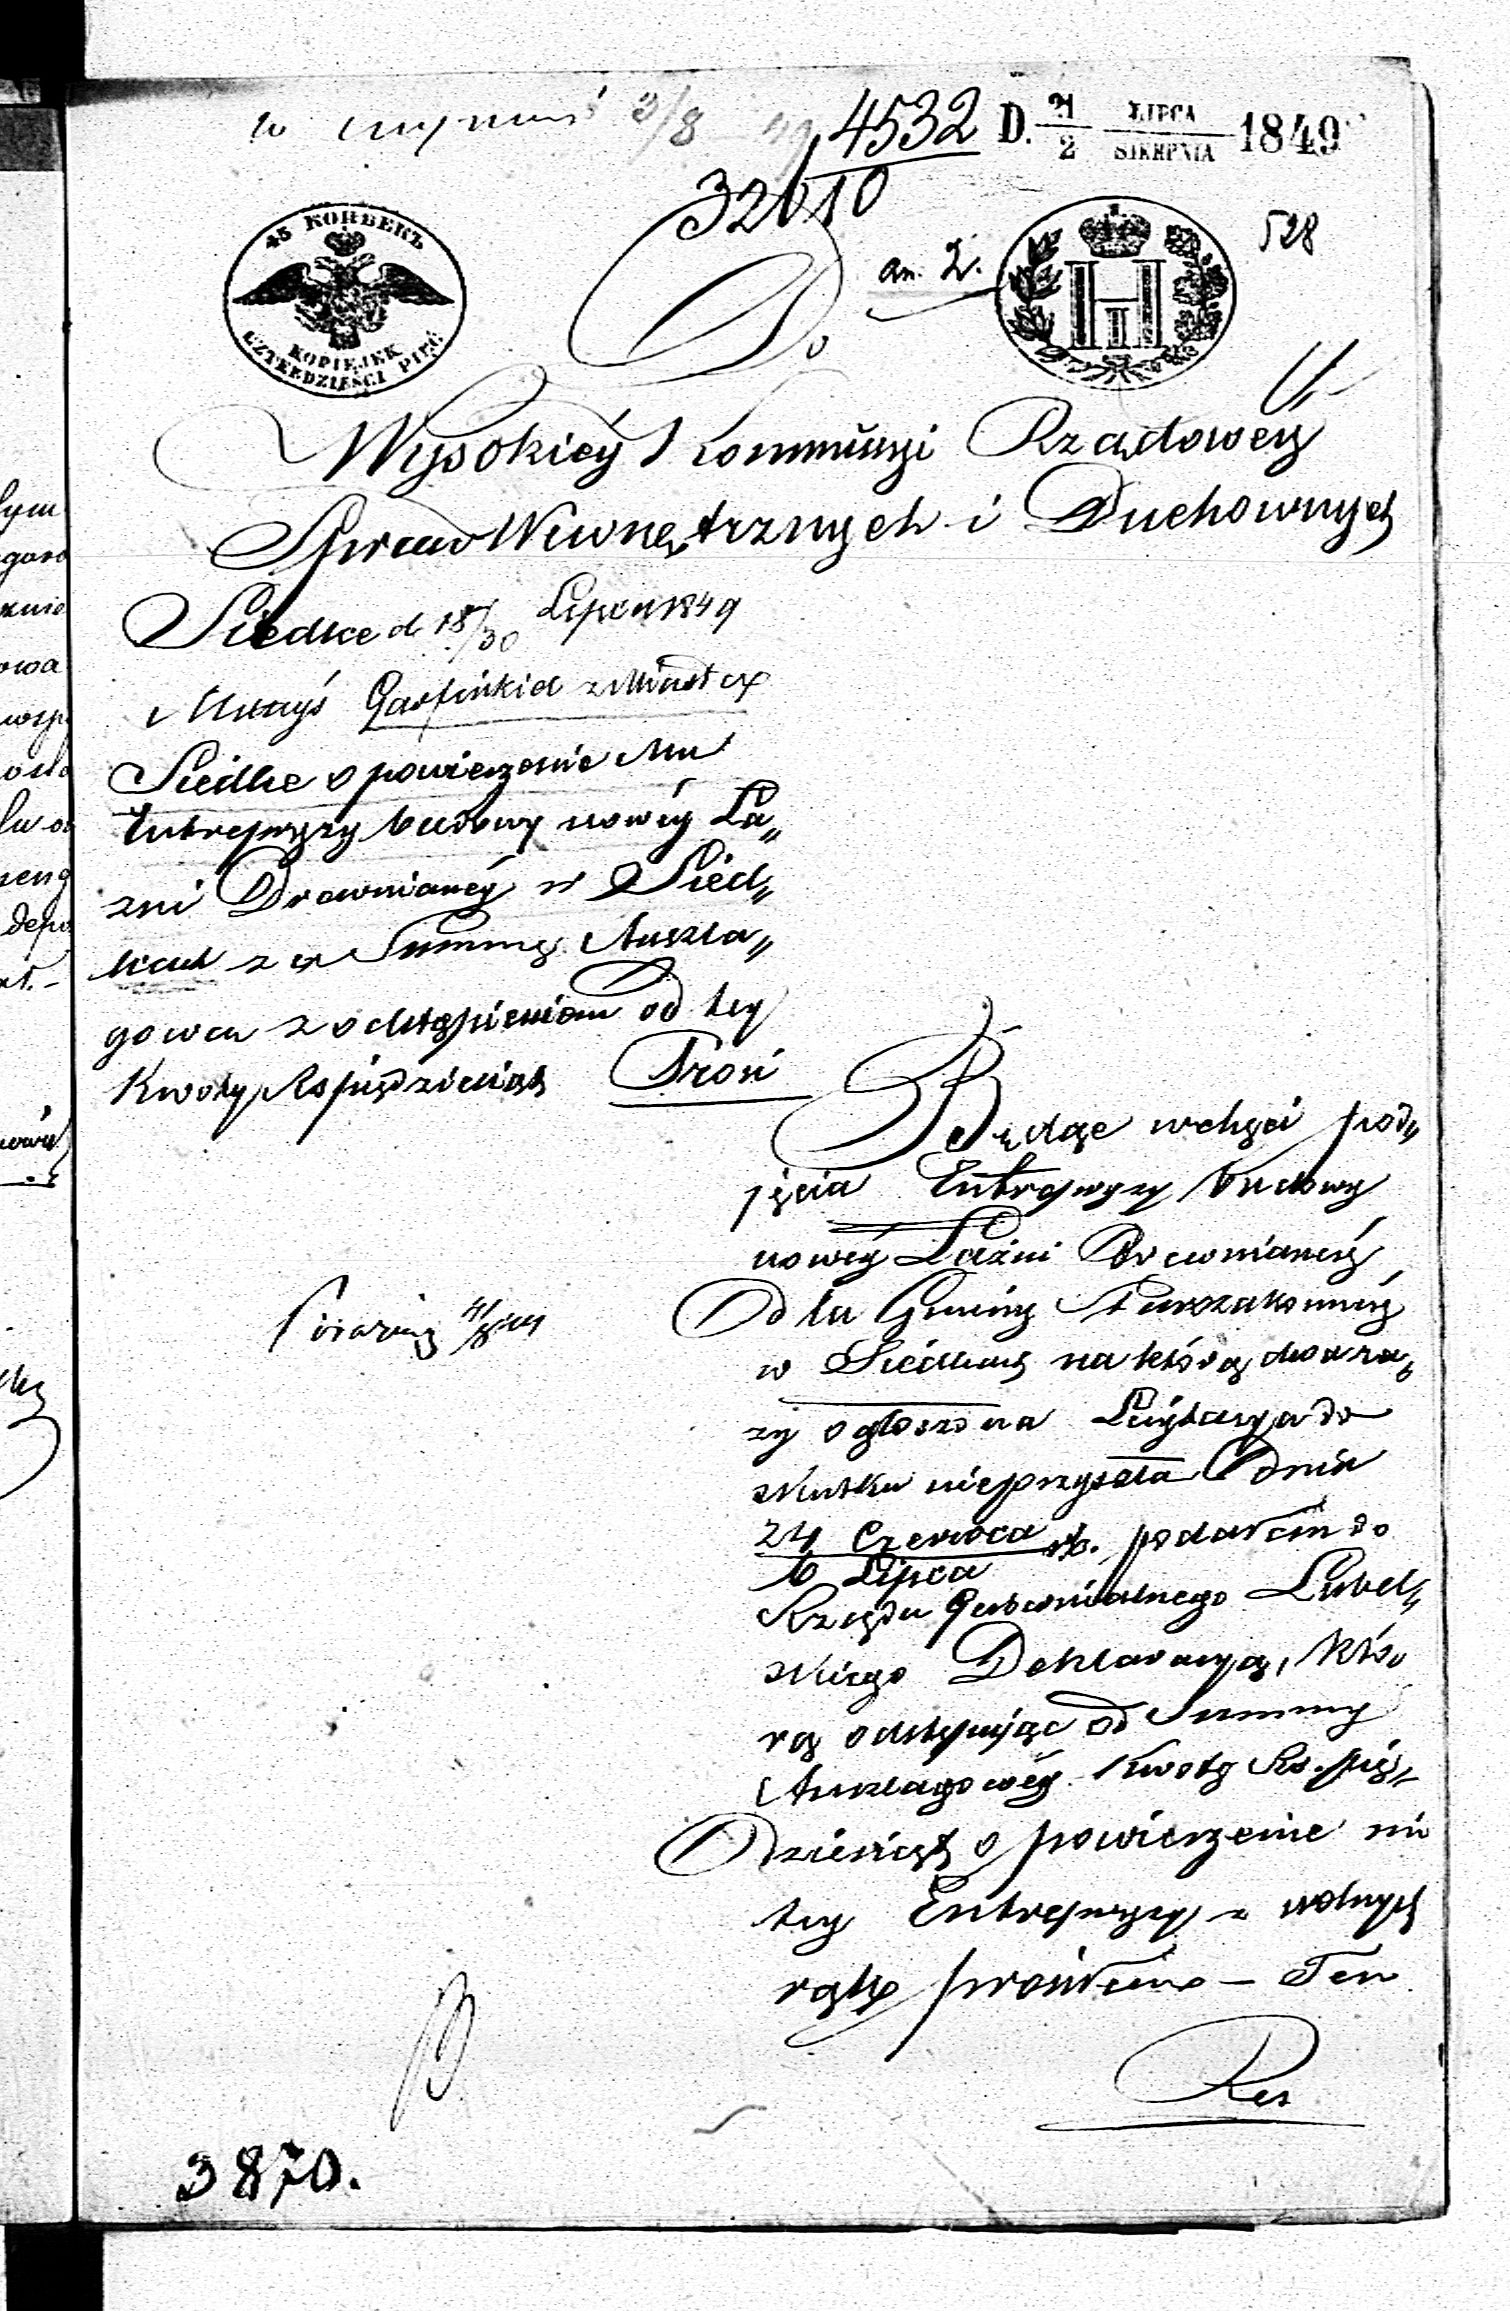 3/8 49 4532 D. 21/2 LIPCA/SIERPNIA 1849
32610
an. 2. 528
45 КОПѢЕКЪ
KOPIEJEK CZTERDZIEŚCI PIĘĆ
H I
Do
Wysokiéy Kommissyi Rządowéy
Spraw Wewnętrznych i Duchownych
Siedlce d. 18/30 Lipca 1849
Garfinkiel z Miasta
Siedlce o powierzenie Mu
Entrepryzy budowy nowéy Ła„
zni Drewnianéy w Siedl„
cach za Summę Anszla„
gową z odstąpieniem od téy
Kwoty Rs pięćdziesiąt Prosi
Będąc w chęci pod„
jęcia Entrepryzy budowy
nowéy Łaźni Drewnianéy
dla Gminy Starozakonnéy
w Siedlcach na którą dwa ra„
zy ogłoszona Licytacya do
skutku nieprzyszła Dnia
24 Czerwca
6 Lipca rb. podałem do
Rządu Gubernialnego Lubel„
skiego Deklaracyą, któ„
rą odstępując od Summy
Anszlagowéy Kwotę Rs. pięć„
dziesiąt o powierzenie mi
téy Entrepryzy z wolnych
rąk prosiłem – Ten
Rzą
4/8
3870.